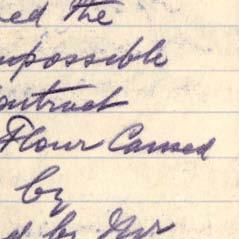 the
impossible
Contract
Flour Caused
by
by